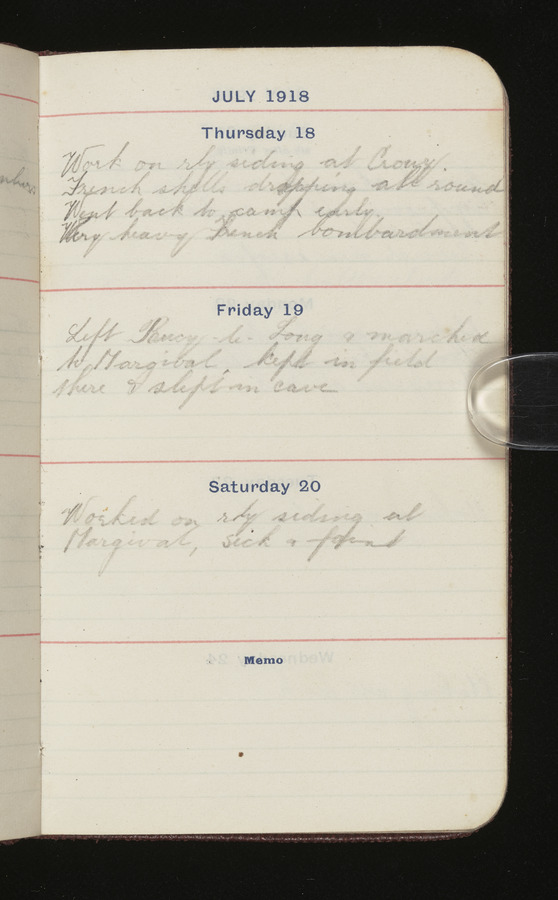 JULY 1918
Thursday 18
Work on rly siding at Crouy.
French shells dropping all round
Went back to camp early.
Very heavy French bombardment
Friday 19
Left Pency-le-Long & marched
to Margival, kept in field
there & slept in cave
Saturday 20
Worked on rly siding at
Margival, sick & faint
Memo